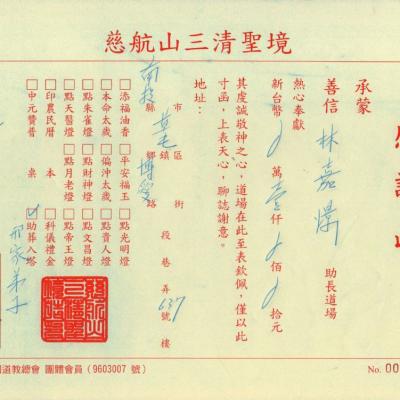 慈航山三清聖境
承蒙
善信 林嘉 助長道場
熱心奉獻
新台幣 萬壹仟 佰 拾元
其虔誠敬神之心，道場在此至表欽佩，僅以此
寸函，上表天心，聊誌謝意。
地址：
南投縣市 草屯鄉鎮區 博愛路街 段 巷 弄 637 號 樓
□添福油香 □平安福玉 □點光明燈
□本命太歲 □偏沖太歲 □點貴人燈
□點朱雀燈 □點財神燈 □點文昌燈
□點天醫燈 □點月老燈 □點帝王燈
□印農民曆 □科儀禮金
□中元贊普 桌 本 助葬入塔
邢家弟子
道教總會 團體會員 (9603007 號)
No. 00